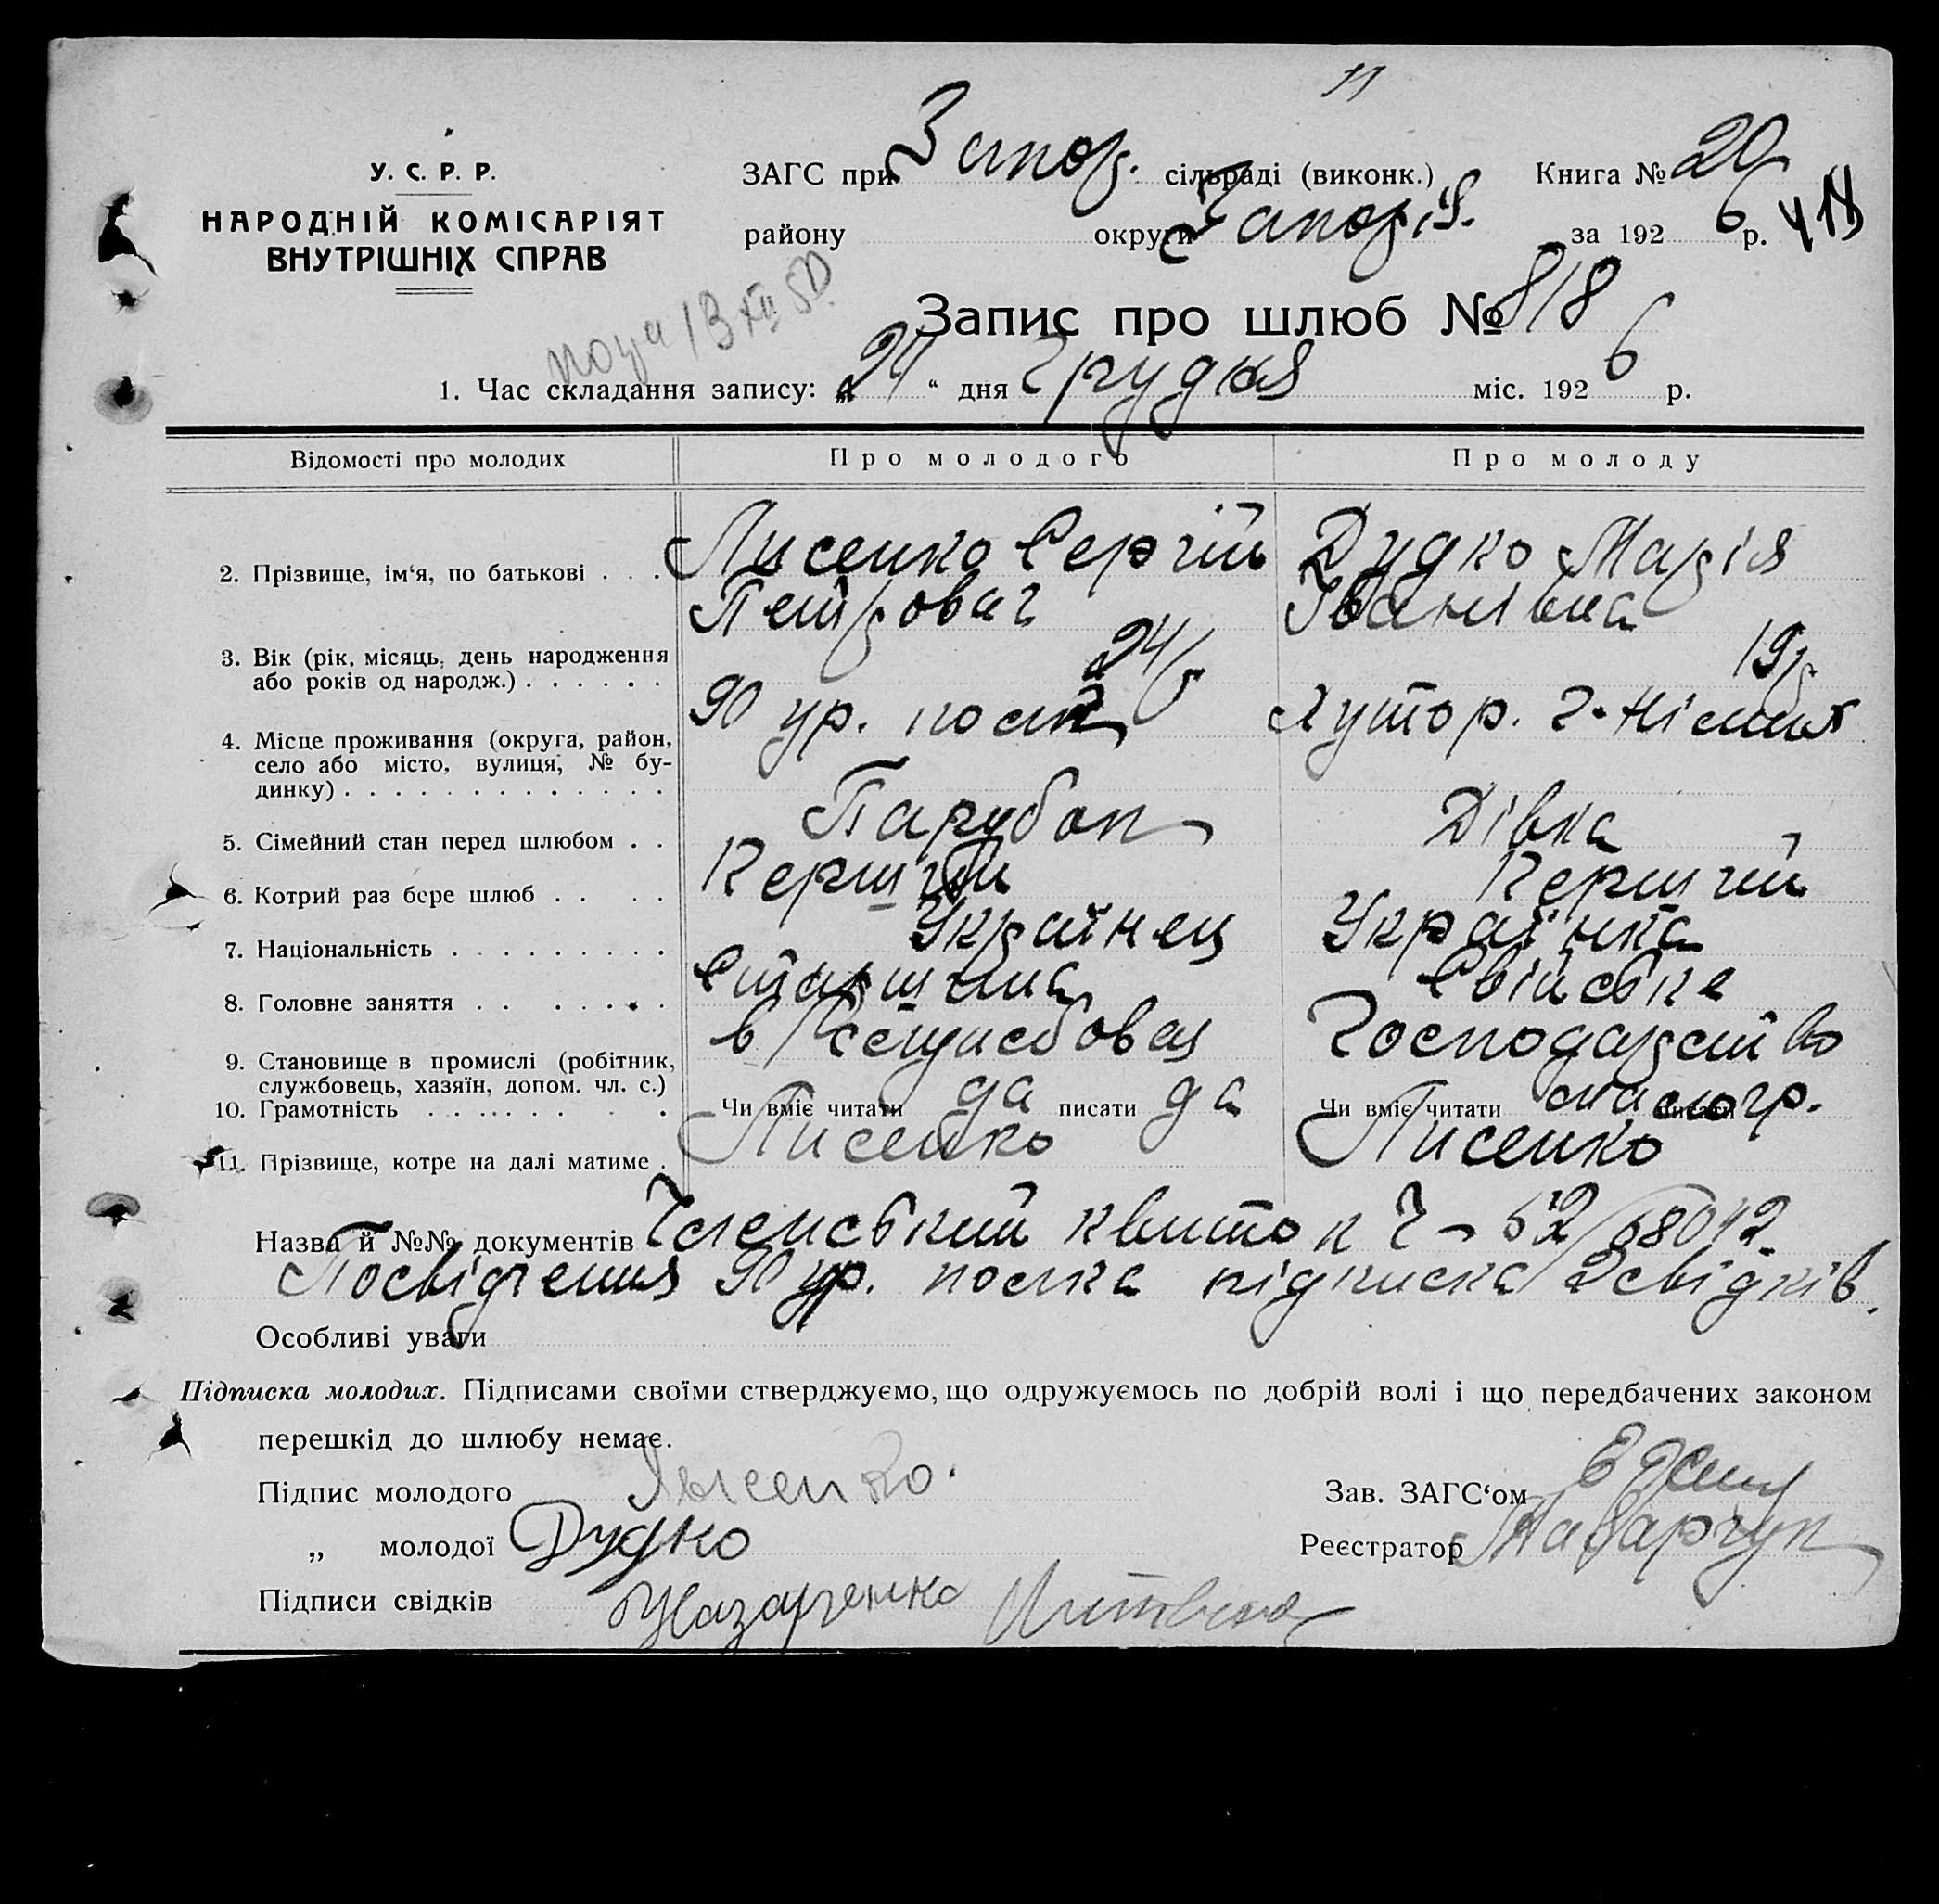 У. С. Р. Р.
НАРОДНІЙ КОМІСАРІЯТ
ВНУТРІШНІХ СПРАВ
ЗАГС при Запор. сільраді (виконк.) Книга № 20
району округи Запоріз. за 1926 р.
Запис про шлюб № 818
1. Час складання запису: „24“ дня Грудня міс. 1926 р.
Відомості про молодих Про молодого Про молоду
2. Прізвище, ім‘я, по батькові . . . Лисенко Сергій Дудко Марія
Петрович Іванівна
3. Вік (рік, місяць, день народження
або років од народж.) . . . . . . 24 р 19 р
4. Місце проживання (округа, район,
село або місто, вулиця, № бу-
динку) . . . . . . . . . . . . . . 90 ур. полк Хутор.
5. Сімейний стан перед шлюбом . . Парубок Дівка
6. Котрий раз бере шлюб . . . . Перший Перший
7. Національність . . . . . . . . . Українец Українка
8. Головне заняття . . . . . . . Старшина Сільське
9. Становище в промислі (робітник,
службовець, хазяїн, допом. чл. с.) Господарство
10. Грамотність . . . . . . . . Чи вміє читати да писати да Чи вміє читати малогр. писати
11. Прізвище, котре на далі матиме . Лисенко Лисенко
Назва й №№ документів Членський квиток
Посвідчення 90 ур. полка підписка 2 свідків.
Особливі уваги
Підписка молодих. Підписами своїми стверджуємо, що одружуємось по добрій волі і що передбачених законом
перешкід до шлюбу немає.
Підпис молодого Лысенко. Зав. ЗАГС‘ом
„ молодої Дудко Реєстратор
Підписи свідків Назаренко